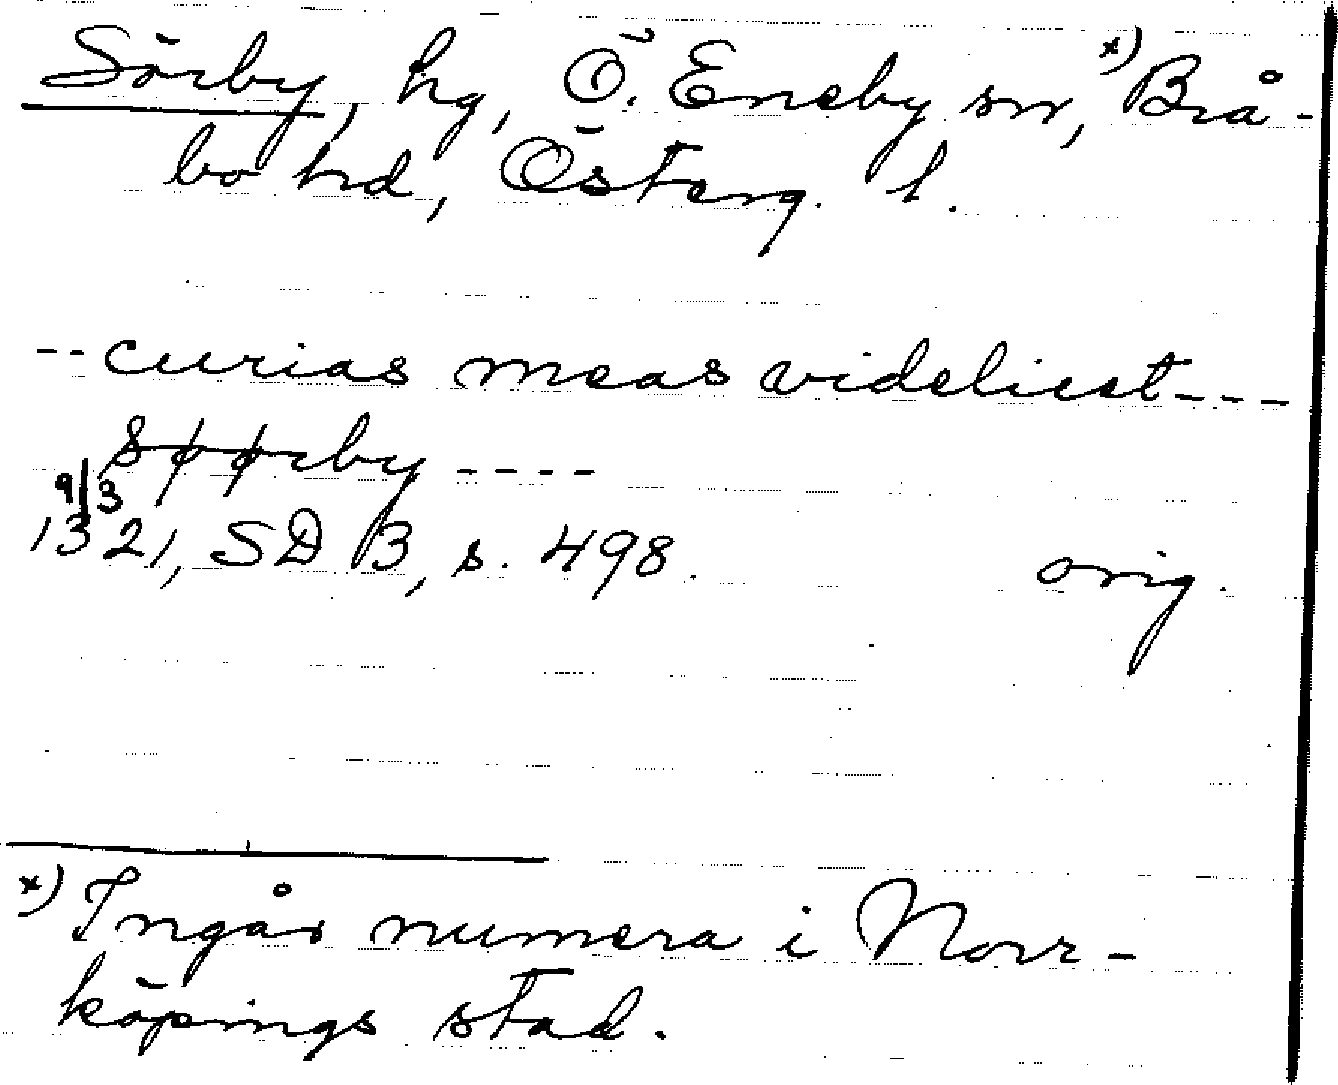 Sörby, hg, Ö. Eneby sn, x) Brå-
bo hd, Österg. l.
-- curias meas videlicet ---
søørby ----
9/3
1321, SD 3, s. 498. orig.
x) Ingår numera i Norr-
köpings stad.